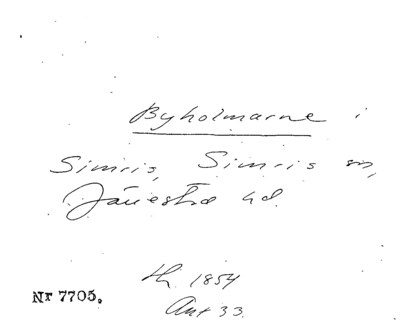 Byholmarne i
Simris, Simris sn,
Järrestad hd.
th. 1854
Akt 33
Nr 7705.